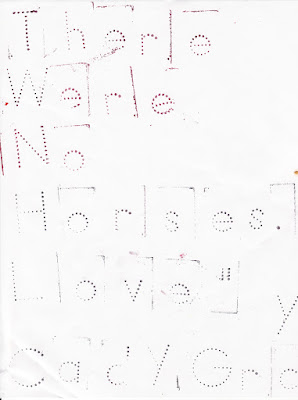 Therle
Werle
No
Horses.
Love"
y
Cady Gra